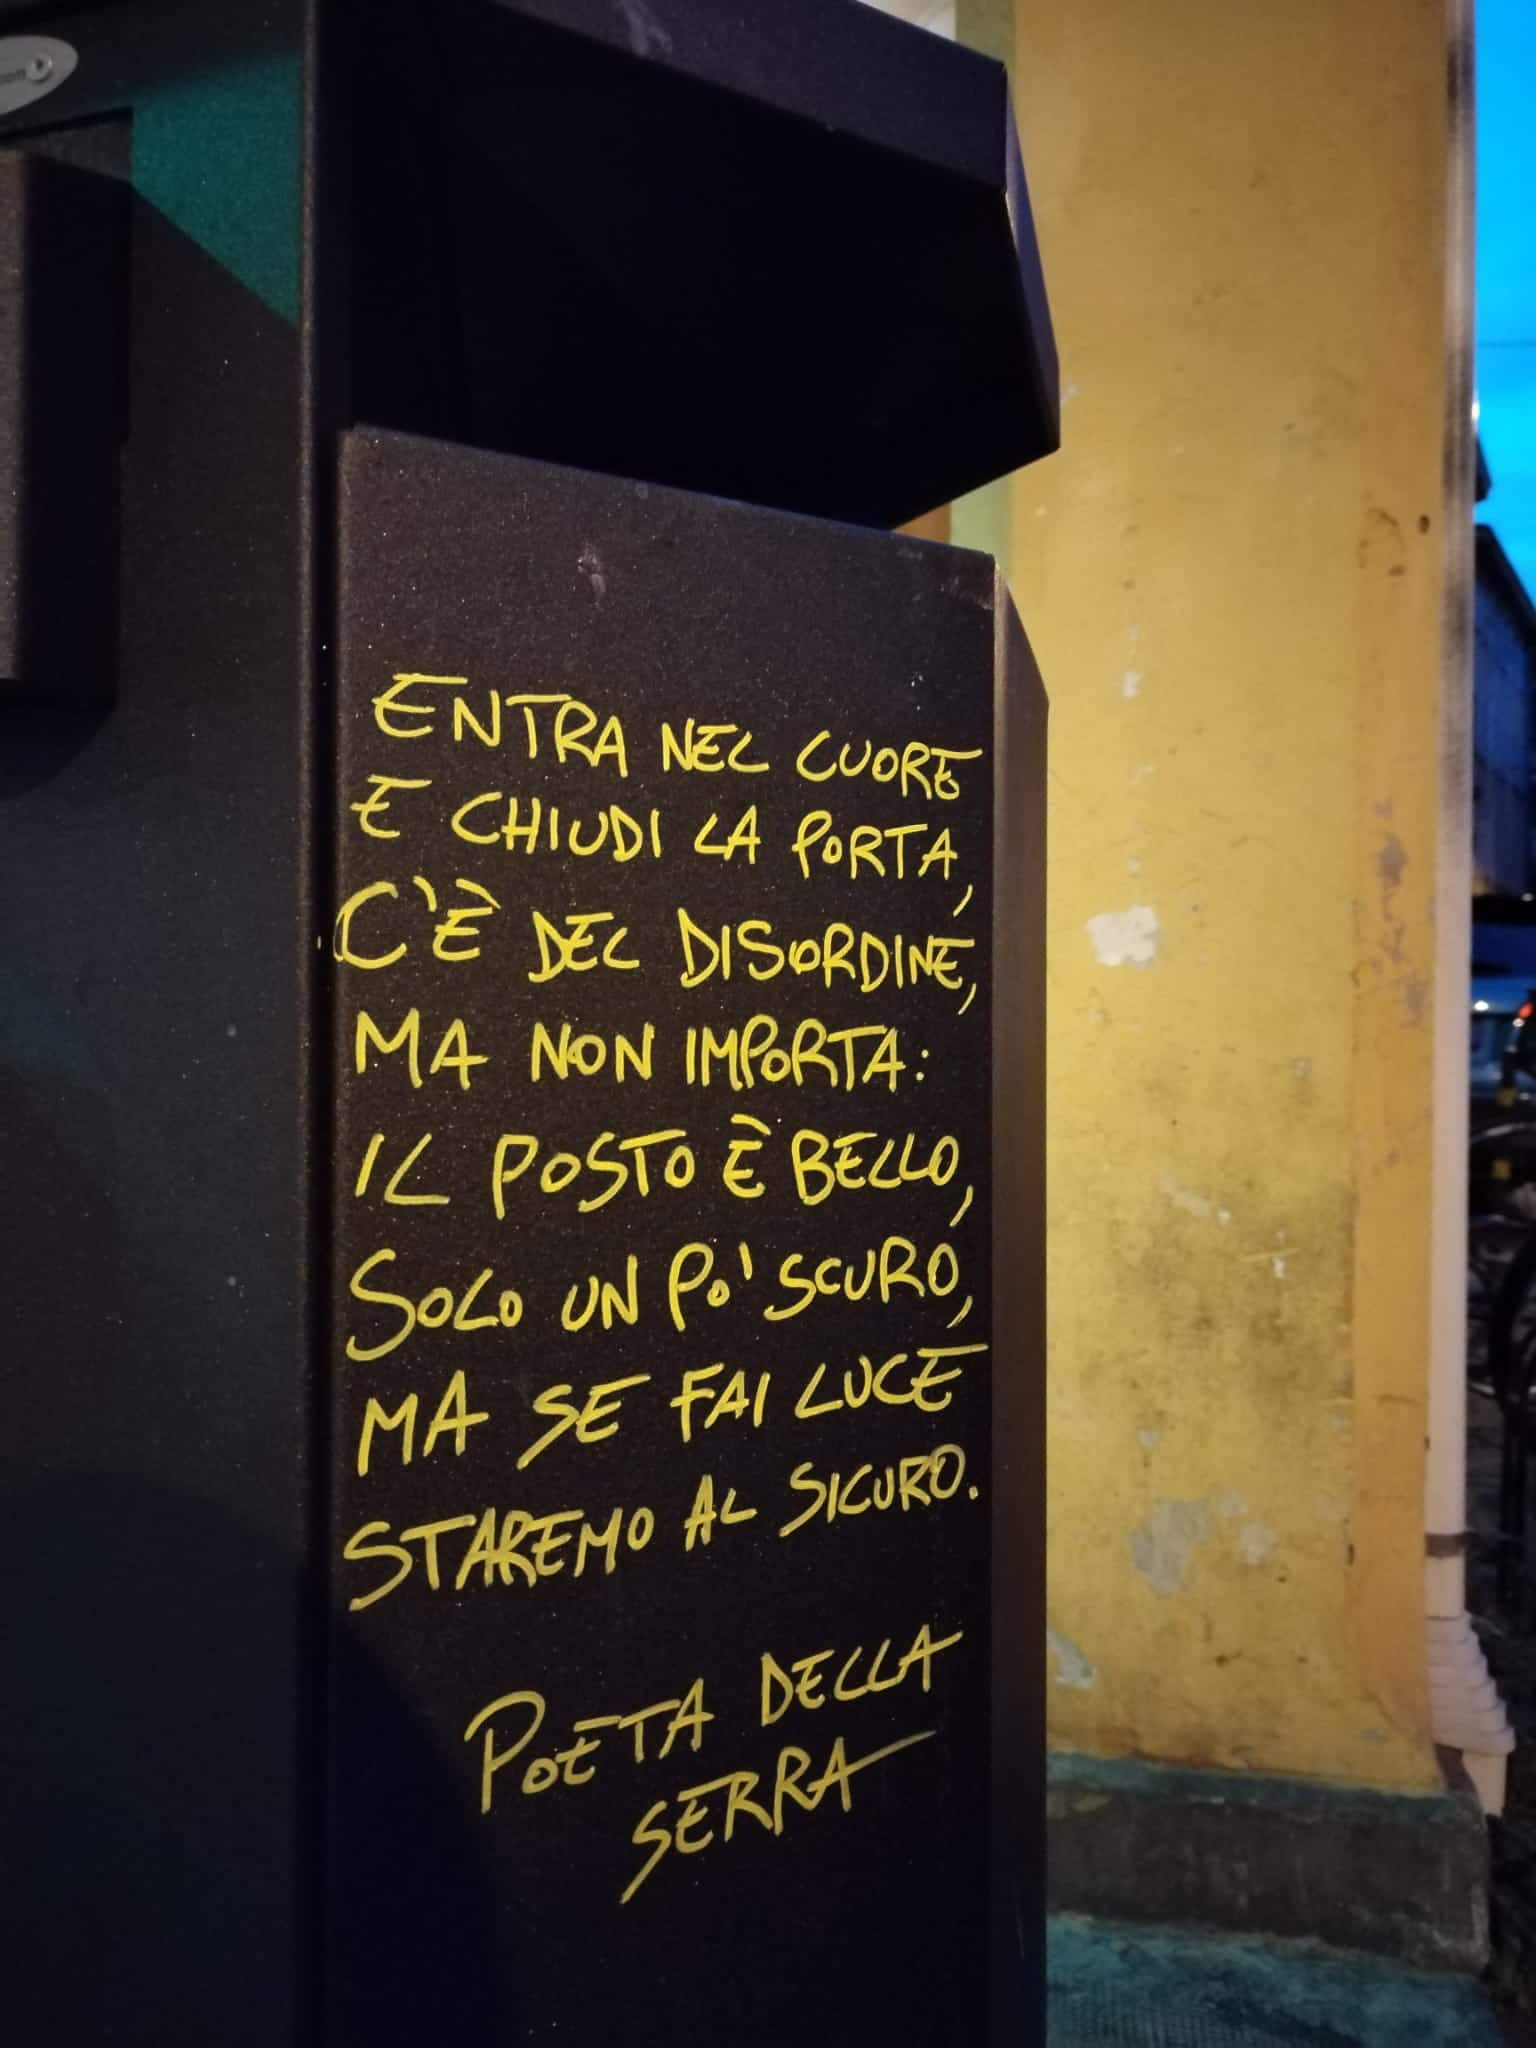 ENTRA NEL CUORE
E CHIUDI LA PORTA,
C'È DEL DISORDINE,
MA NON IMPORTA:
IL POSTO È BELLO,
SOLO UN PO' SCURO,
MA SE FAI LUCE
STAREMO AL SICURO.
POETA DELLA
SERRA